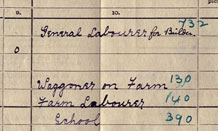 10.
732
General Labourer for Builder
0
Waggoner on Farm 130
Farm Labourer 140
School 390